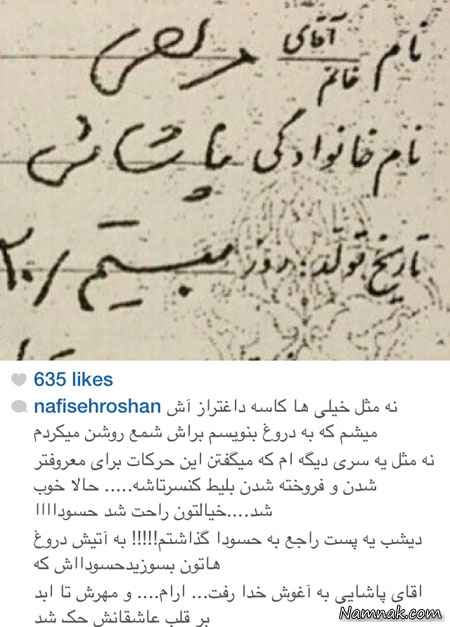 نام آقای مرتضی
خانم
نام خانوادگی پاشائی
تاریخ تولد: روز بیستم / ۲۰
635 likes
nafisehroshan نه مثل خیلی ها کاسه داغتراز آش
میشم که به دروغ بنویسم براش شمع روشن میکردم
نه مثل یه سری دیگه ام که میگفتن این حرکات برای معروفتر
شدن و فروخته شدن بلیط کنسرتاشه..... حالا خوب
شد....خیالتون راحت شد حسوداااا
دیشب یه پست راجع به حسودا گذاشتم!!!!! به آتیش دروغ
هاتون بسوزیدحسودااش که
اقای پاشایی به آغوش خدا رفت... ارام.... و مهرش تا ابد
بر قلب عاشقانش حک شد
Namnak.com